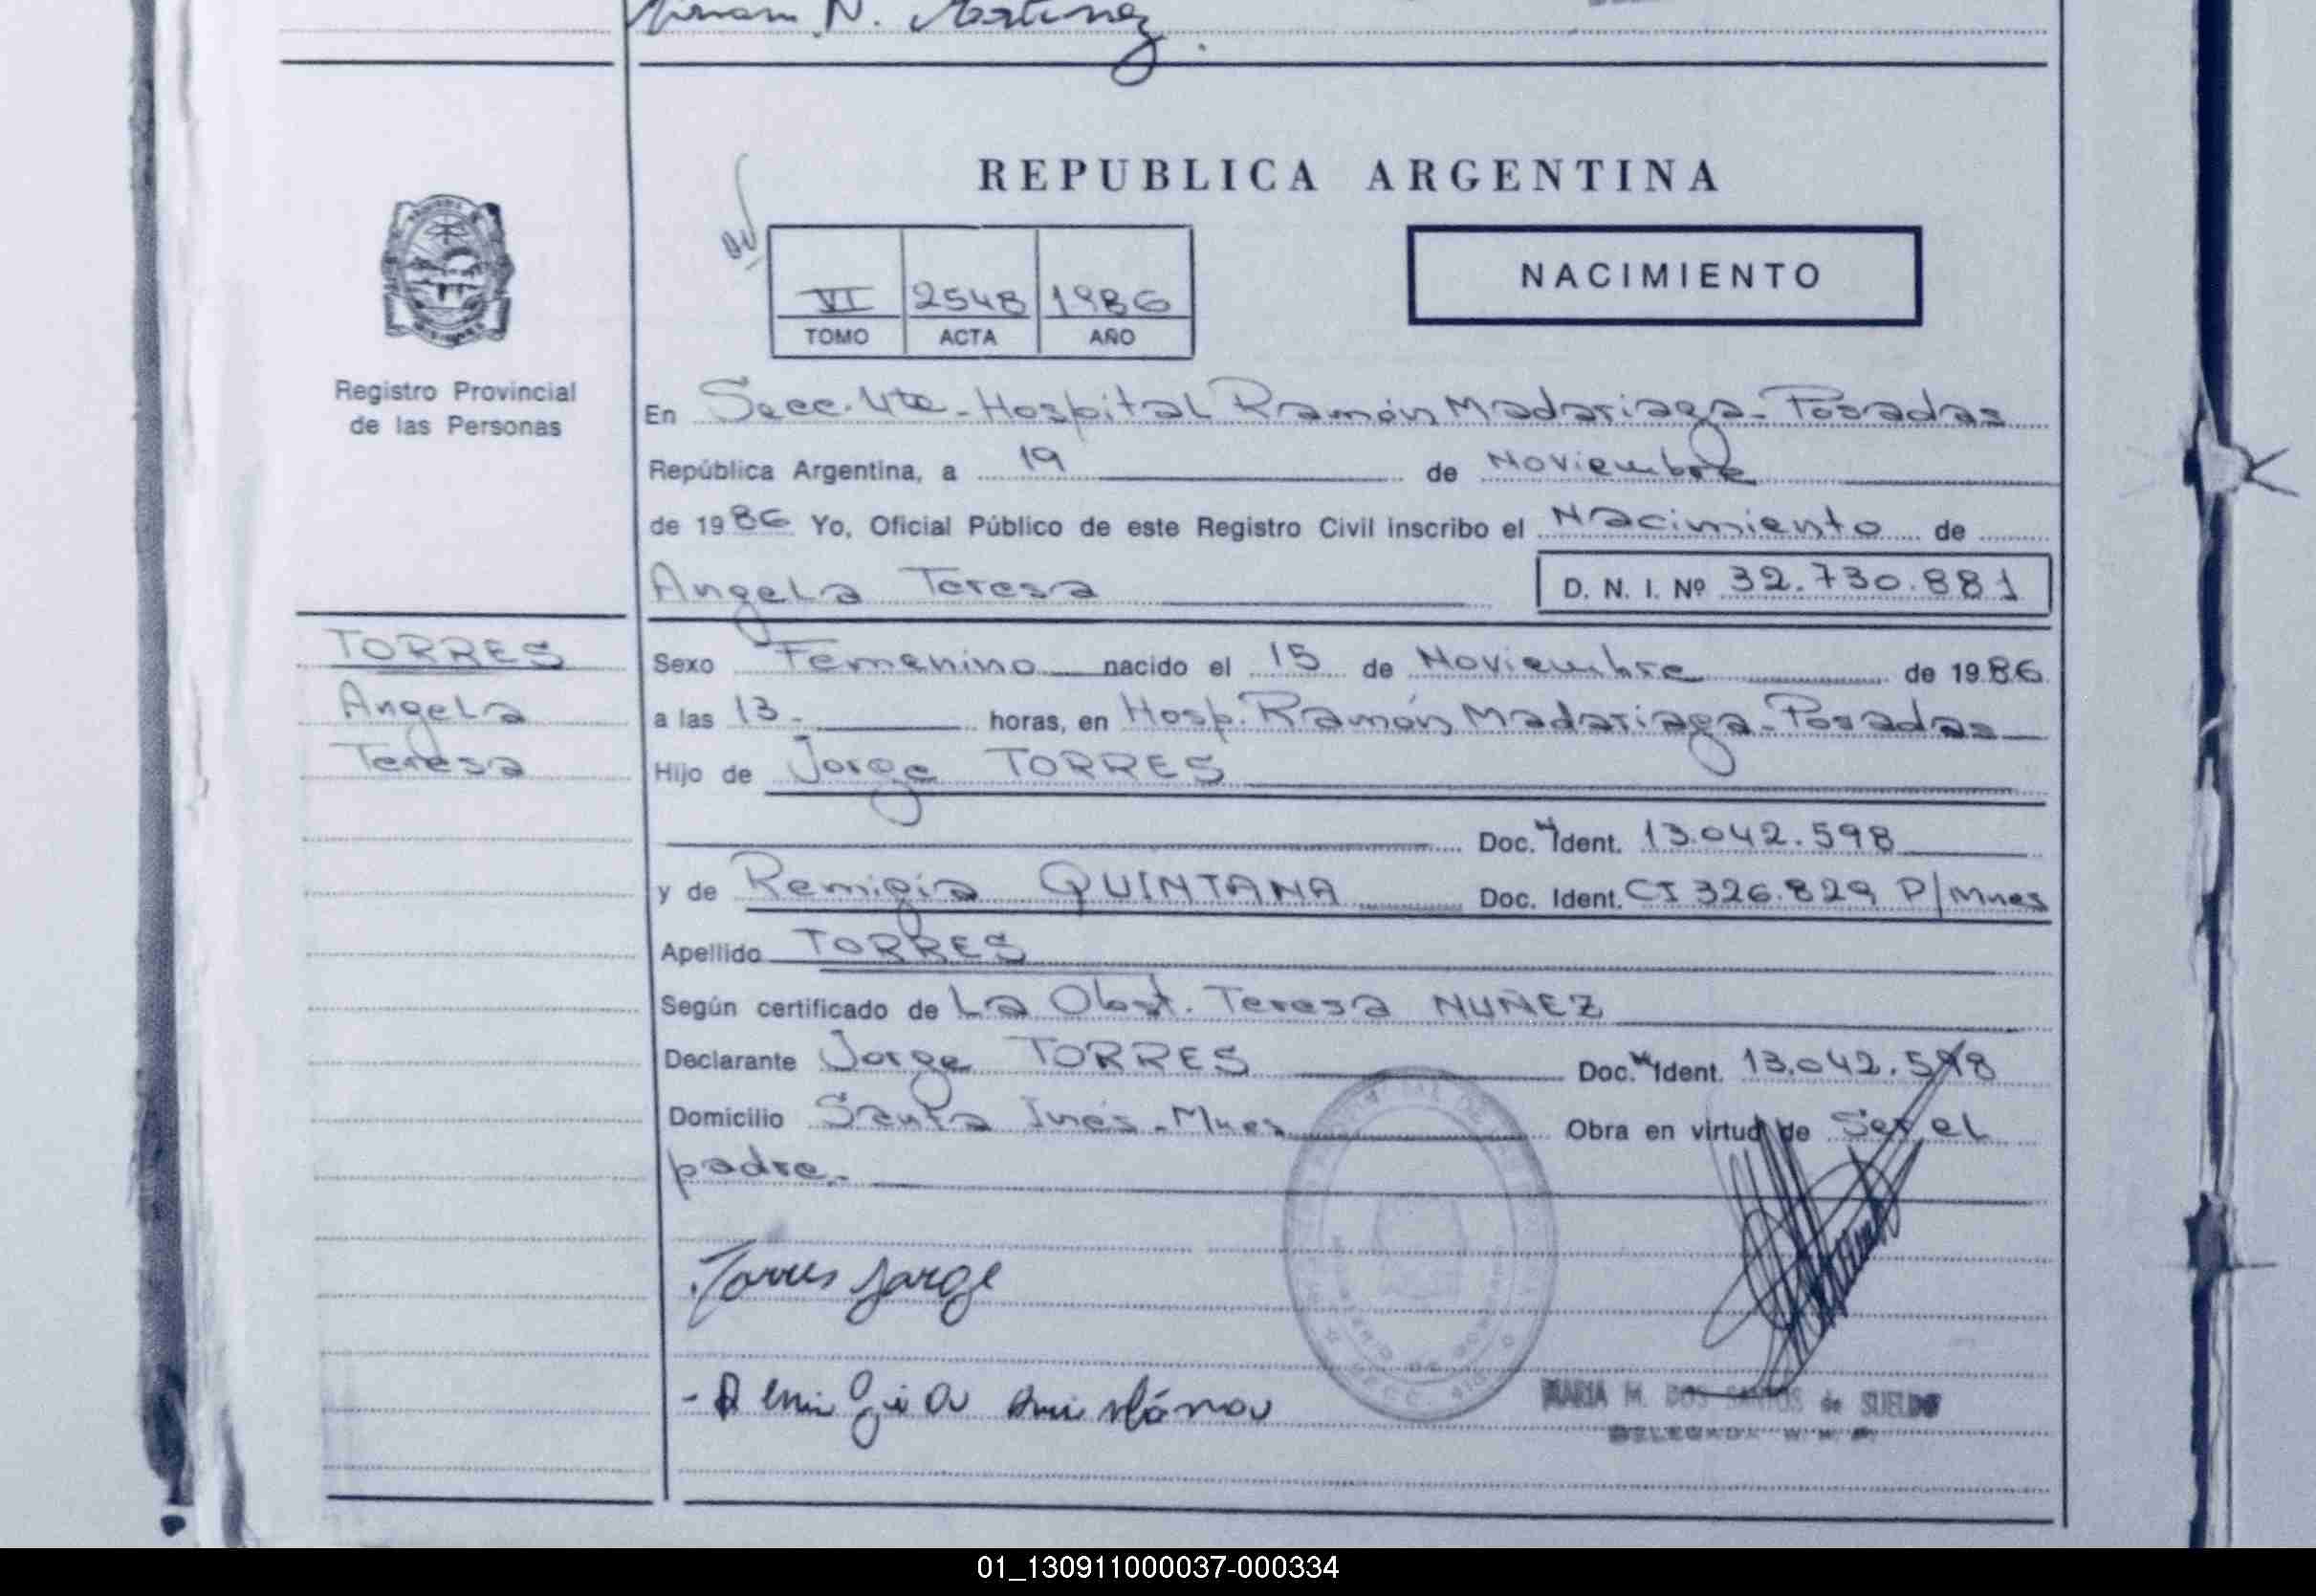 N. Martinez
REPUBLICA ARGENTINA
NACIMIENTO
VI 2548 1986
TOMO ACTA AÑO
Registro Provincial
de las Personas
En Secc. 4ta - Hospital Ramón Madariaga - Posadas
República Argentina, a 19 de Noviembre
de 1986 Yo, Oficial Público de este Registro Civil inscribo el Nacimiento de
Angela Teresa D. N. I. Nº 32.730.881
TORRES
Angela
Teresa
Sexo Femenino nacido el 15 de Noviembre de 1986
a las 13.- horas, en Hosp. Ramón Madariaga - Posadas
Hijo de Jorge TORRES
Doc. Ident. 13.042.598
y de Remigia QUINTANA Doc. Ident. CI 326.829 P/Mnes
Apellido TORRES
Según certificado de La Obst. Teresa NUÑEZ
Declarante Jorge TORRES Doc. Ident. 13.042.598
Domicilio Santa Inés - Mnes Obra en virtud de Ser el
padre.-
Torres Jorge
MARIA M. DOS SANTOS de SUELDO
DELEGADA
01_130911000037-000334